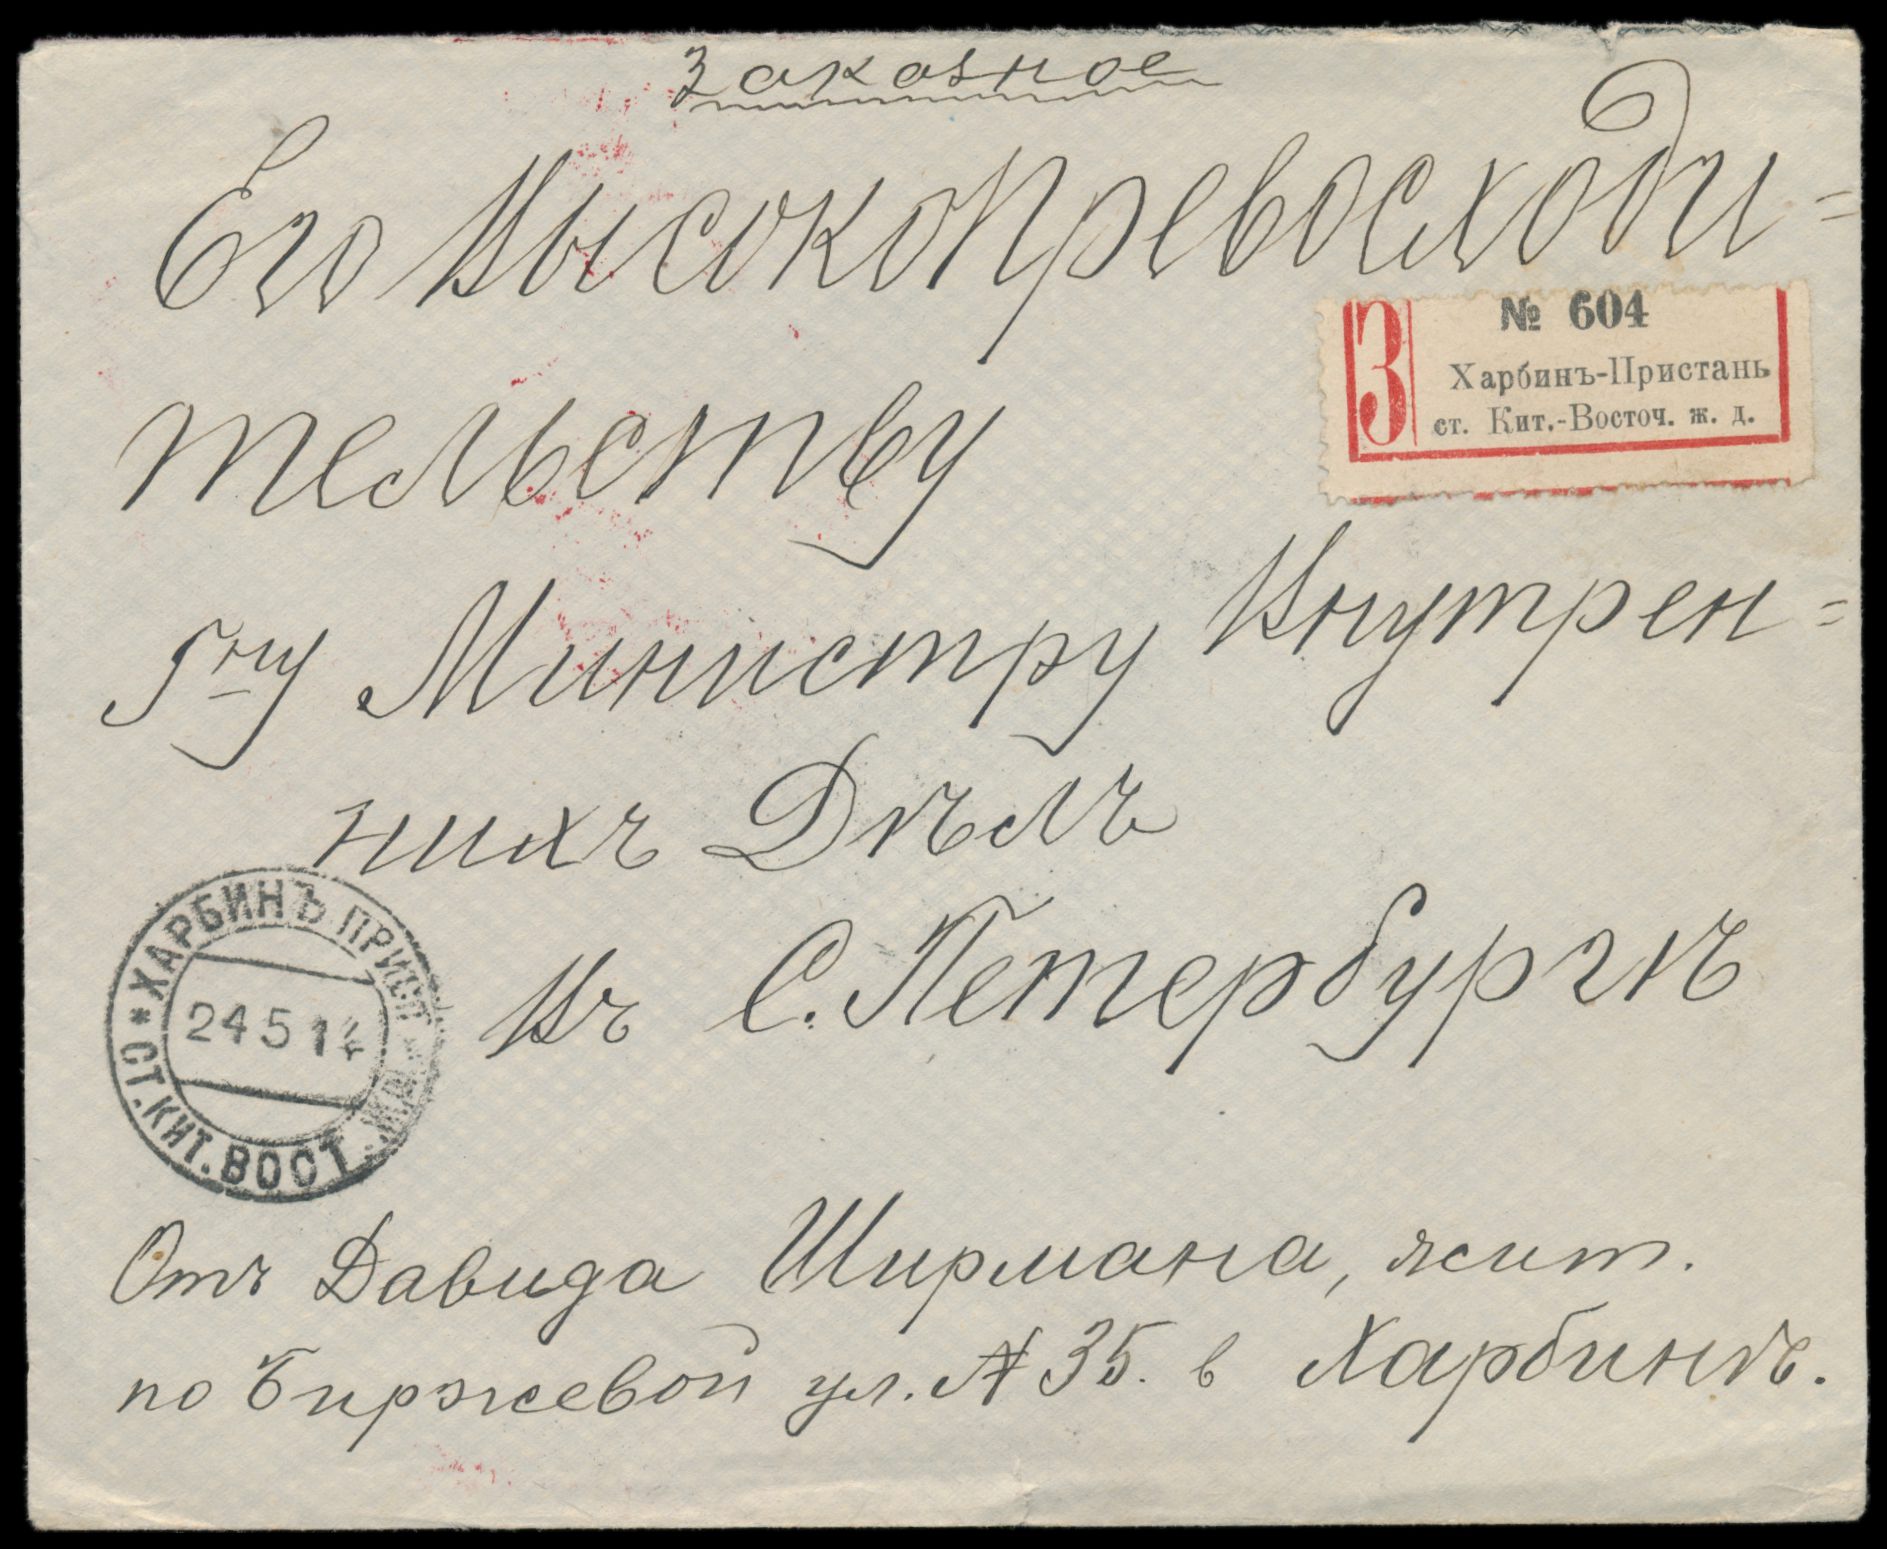 Заказное
Его Высокопревосходи=
тельству
Гну Министру Внутрен=
нихъ Дѣлъ
Въ С. Петербургѣ
З
№ 604
Харбинъ-Пристань
ст. Кит.-Восточ. ж. д.
* ХАРБИНЪ ПРИСТ. *
24 5 14
СТ. КИТ. ВОСТ. Ж.Д.
Отъ Давида Ширмана, жит.
по Биржевой ул. № 35. в Харбинѣ.